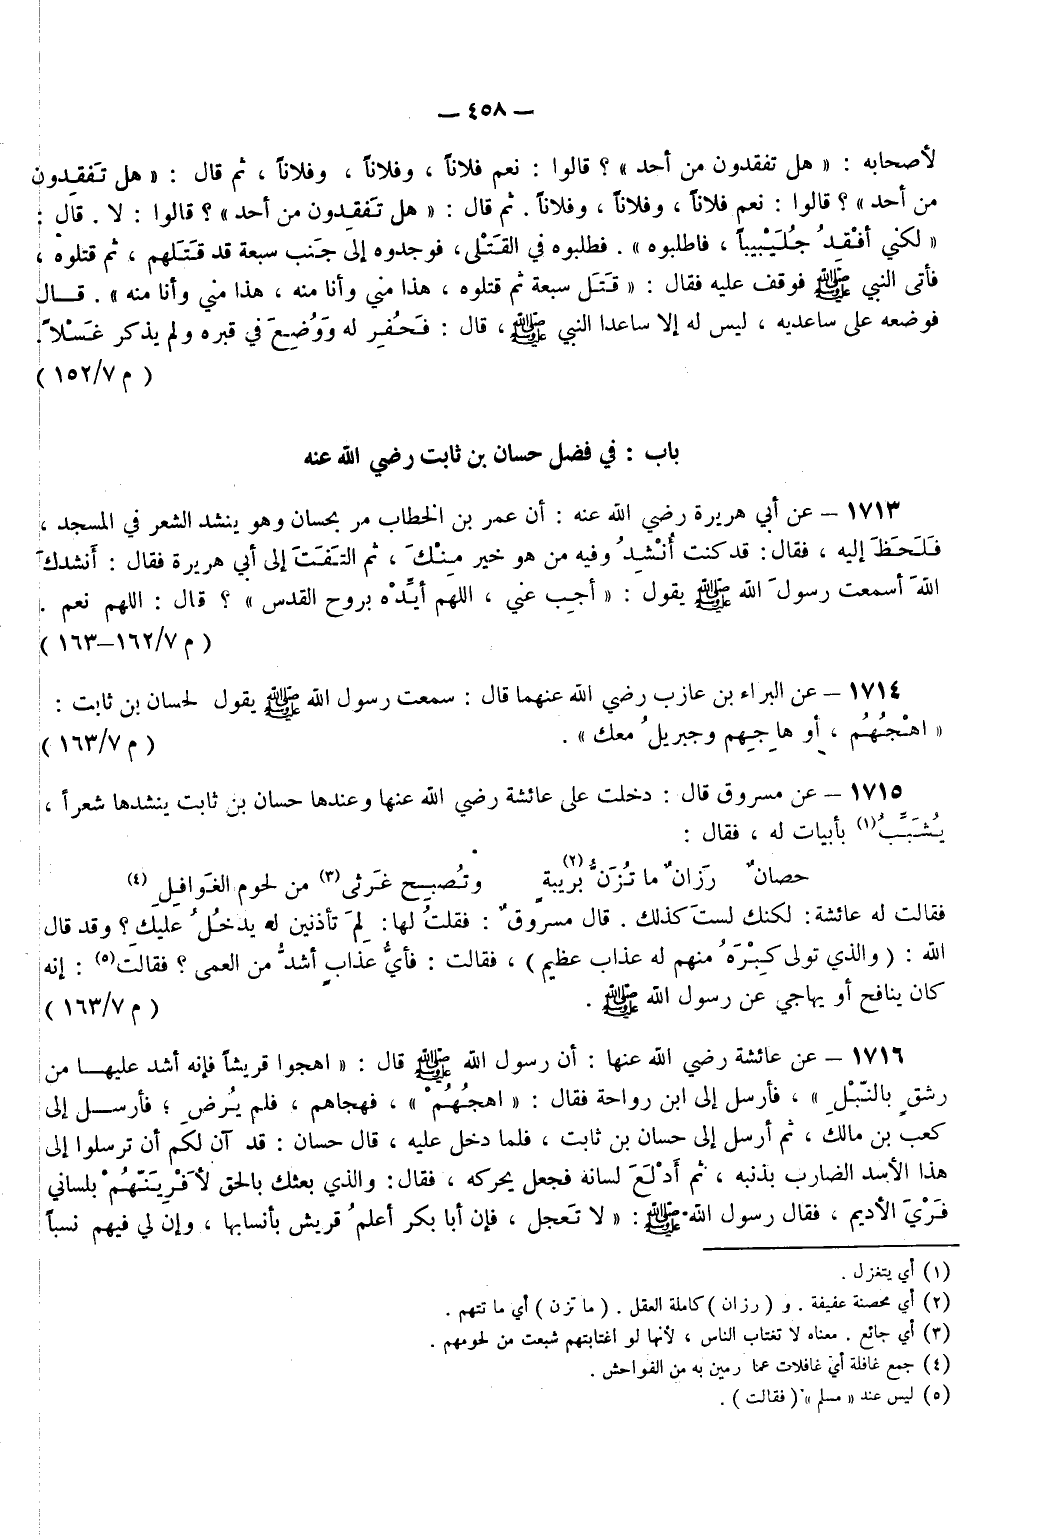 — ٤٥٨ —
لأصحابه : « هل تفقدون من أحد » ؟ قالوا : نعم فلاناً ، وفلاناً ، وفلاناً ، ثم قال : « هل تَفقِدون
من أحد » ؟ قالوا : نعم فلاناً ، وفلاناً ، وفلاناً . ثم قال : « هل تَفقِدون من أحد » ؟ قالوا : لا . قال :
« لكني أفْقِدُ جُلَيْبِيباً ، فاطلبوه » . فطلبوه في القَتْلى، فوجدوه إلى جَنب سبعة قد قَتَلهم ، ثم قتلوه ،
فأتى النبي ﷺ فوقف عليه فقال : « قَتَل سبعة ثم قتلوه ، هذا مني وأنا منه ، هذا مني وأنا منه » . قـــال
فوضعه على ساعديه ، ليس له إلا ساعدا النبي ﷺ ، قال : فَحُفِر له وَوُضِعَ في قبره ولم يذكر غَسْلاً .
( م ١٥٢/٧ )
باب : في فضل حسان بن ثابت رضي الله عنه
١٧١٣ – عن أبي هريرة رضي الله عنه : أن عمر بن الخطاب مر بحسان وهو ينشد الشعر في المسجد ،
فَلَحَظَ إليه ، فقال : قد كنت أُنْشِدُ وفيه من هو خير مِنْكَ ، ثم التَفَتَ إلى أبي هريرة فقال : أَنشدكَ
اللهَ أسمعت رسولَ الله ﷺ يقول : « أجِب عني ، اللهم أيِّدْه بروح القدس » ؟ قال : اللهم نعم .
( م ١٦٢/٧–١٦٣ )
١٧١٤ – عن البراء بن عازب رضي الله عنهما قال : سمعت رسول الله ﷺ يقول لحسان بن ثابت :
« اهْجُهُم ، أو هاجِهِم وجبريلُ معك » .
( م ١٦٣/٧ )
١٧١٥ – عن مسروق قال : دخلت على عائشة رضي الله عنها وعندها حسان بن ثابت ينشدها شعراً ،
يُشَبِّبُ(١) بأبيات له ، فقال :
حصانٌ رَزانٌ ما تُزَنُّ(٢) بريبةٍ وتُصبِح غَرثى(٣) من لحوم الغَوافِلِ(٤)
فقالت له عائشة: لكنك لستَ كذلك . قال مسروقٌ : فقلتُ لها: لِمَ تأذنين له يدخلُ عليكِ ؟ وقد قال
الله : ( والذي تولى كِبْرَهُ منهم له عذاب عظيم ) ، فقالت : فأيُّ عذابٍ أشدُّ من العمى ؟ فقالت(٥) : إنه
كان ينافح أو يهاجي عن رسول الله ﷺ .
( م ١٦٣/٧ )
١٧١٦ – عن عائشة رضي الله عنها : أن رسول الله ﷺ قال : « اهجوا قريشاً فإنه أشد عليهــا من
رشقٍ بالنَّبْلِ » ، فأرسل إلى ابن رواحة فقال : « اهجُهُمْ » ، فهجاهم ، فلم يُرضِ ؛ فأرســل إلى
كعب بن مالك ، ثم أرسل إلى حسان بن ثابت ، فلما دخل عليه ، قال حسان : قد آن لكم أن ترسلوا إلى
هذا الأسد الضارب بذنبه ، ثم أَدْلَعَ لسانه فجعل يحركه ، فقال: والذي بعثك بالحق لأَفْرِيَنَّهُمْ بلساني
فَرْيَ الأديم ، فقال رسول الله ﷺ : « لا تَعجل ، فإن أبا بكر أعلمُ قريش بأنسابها ، وإن لي فيهم نسباً
(١) أي يتغزل .
(٢) أي محصنة عفيفة . و ( رزان ) كاملة العقل . ( ما تزن ) أي ما تتهم .
(٣) أي جائع . معناه لا تغتاب الناس ، لأنها لو اغتابتهم شبعت من لحومهم .
(٤) جمع غافلة أي غافلات عما رمين به من الفواحش .
(٥) ليس عند « مسلم » ( فقالت ) .